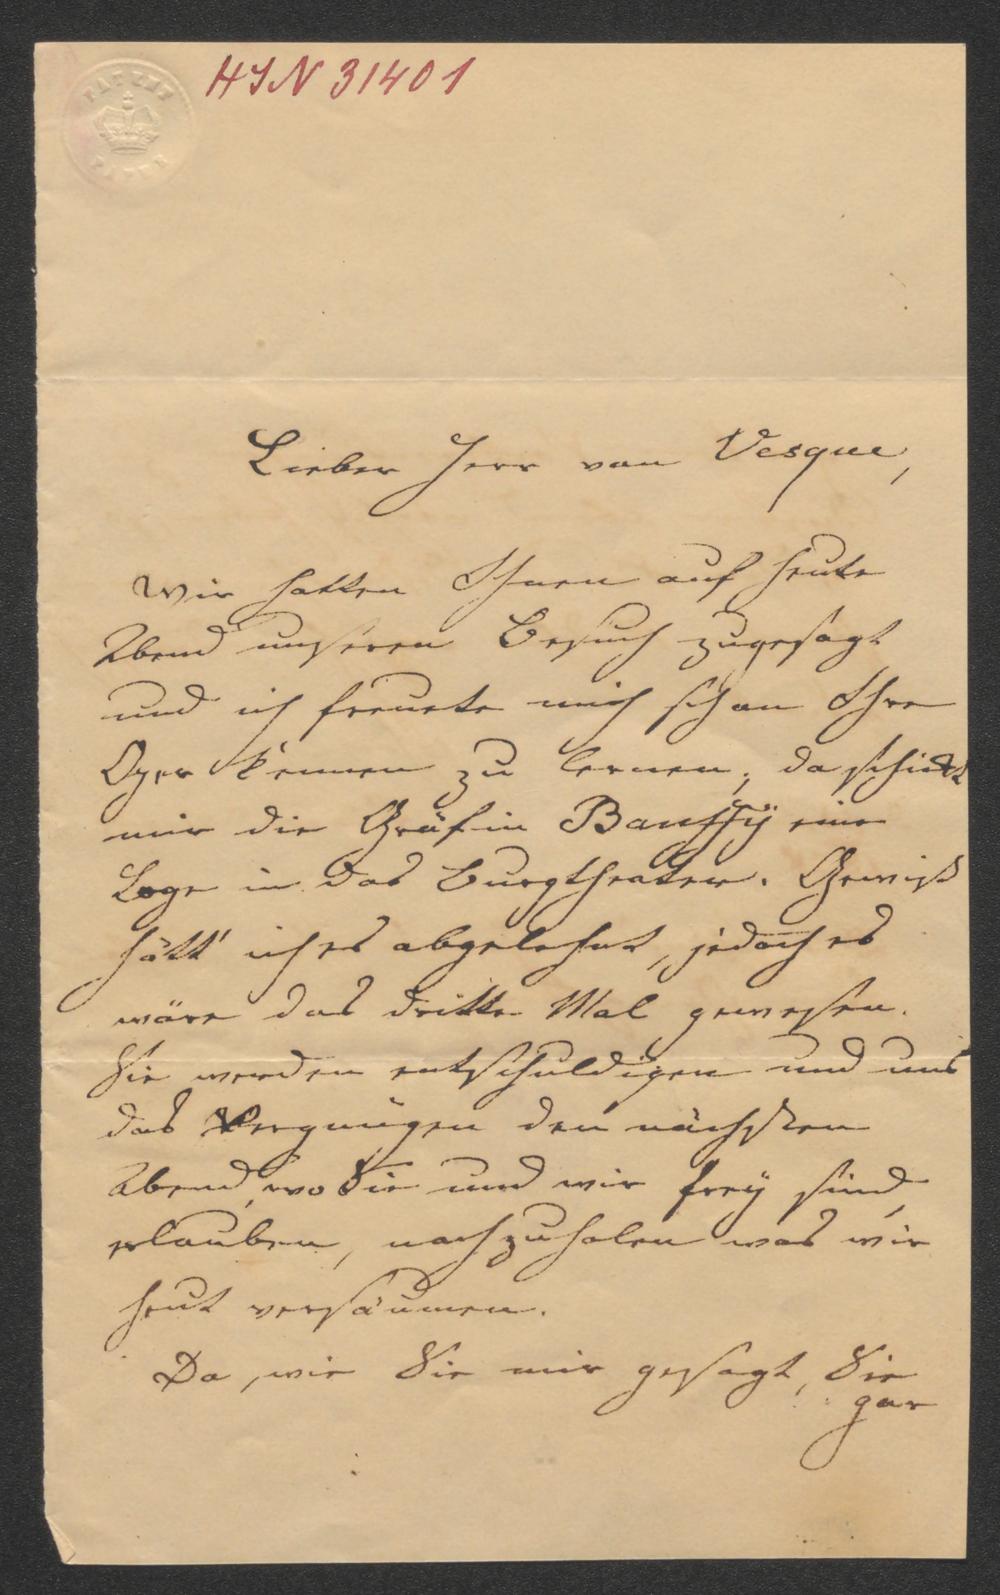 HIN 31401
Lieber Herr von Vesque,
Wir hatten Ihnen auf heute
Abend unseren Besuch zugesagt
und ich freuete mich schon Ihre
Oper kennen zu lernen, da schickt
mir die Gräfin Banffÿ eine
Loge in das Burgtheater. Gewiß
hätt' ich es abgelehnt, jedoch es
wäre das dritte Mal gewesen.
Sie werden entschuldigen und uns
das Vergnügen den nächsten
Abend, wo Sie und wir freÿ sind,
erlauben, nachzuholen was wir
heut versäumen.
Da, wie Sie mir gesagt, Sie
gar